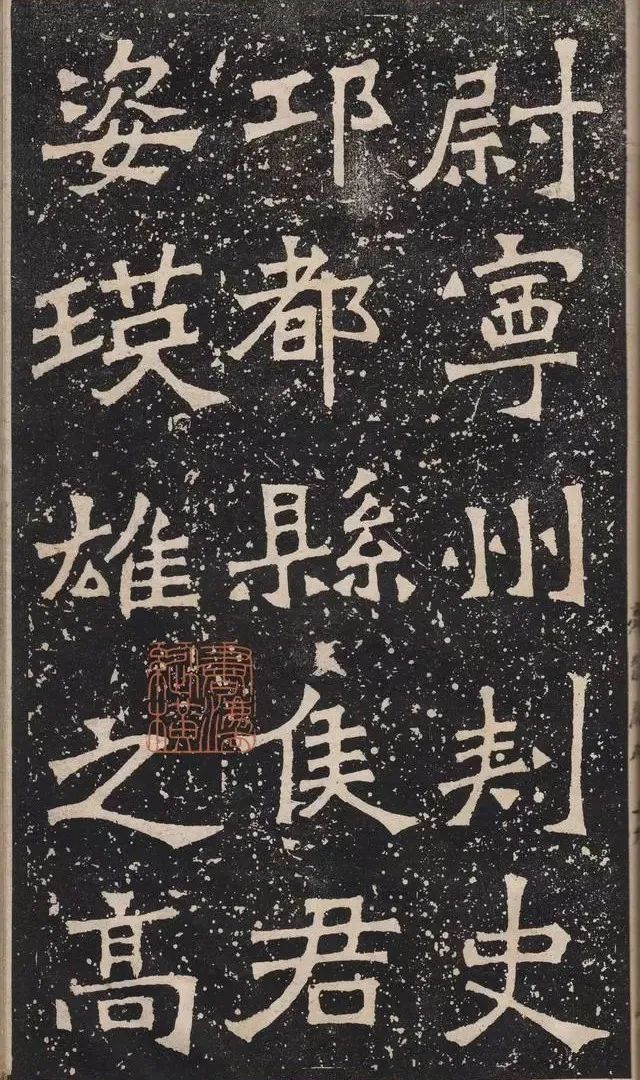 尉寧州刾史
邛都縣侯君
姿瑛雄之高